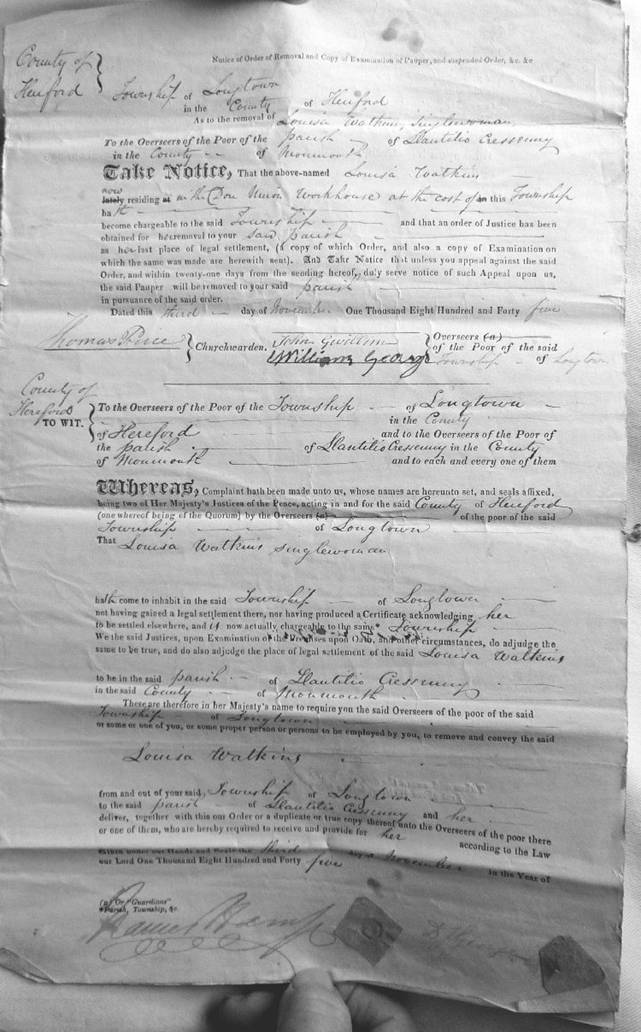 Notice of Order of Removal and Copy of Examination of Pauper, and suspended Order, &c. &c
County of
Hereford
Township of Longtown
in the County of Hereford
As to the removal of Louisa Watkins, Singlewoman,
To the Overseers of the Poor of the parish of Llantilio Cressenny
in the County of Monmouth
Take Notice, That the above-named Louisa Watkins
now
lately residing at in the Dore Union Workhouse at the cost of in this Township
hath
become chargeable to the said Township and that an order of Justice has been
obtained for her removal to your said parish
as her last place of legal settlement, (a copy of which Order, and also a copy of Examination on
which the same was made are herewith sent). And Take Notice that unless you appeal against the said
Order, and within twenty-one days from the sending hereof, duly serve notice of such Appeal upon us,
the said Pauper will be removed to your said parish
in pursuance of the said order.
Dated this third day of November One Thousand Eight Hundred and Forty five
Thomas Price } Churchwarden. John Gwillim } Overseers (a)
William George of the Poor of the said
Township of Longtown
County of
Hereford
TO WIT.
To the Overseers of the Poor of the Township of Longtown
in the County
of Hereford and to the Overseers of the Poor of
the parish of Llantilio Cressenny in the County
of Monmouth and to each and every one of them
Whereas, Complaint hath been made unto us, whose names are hereunto set, and seals affixed,
being two of Her Majesty's Justices of the Peace, acting in and for the said County of Hereford
(one whereof being of the Quorum) by the Overseers (a) of the poor of the said
Township of Longtown
That Louisa Watkins singlewoman
hath come to inhabit in the said Township of Longtown
not having gained a legal settlement there, nor having produced a Certificate acknowledging her
to be settled elsewhere, and is now actually chargeable to the same Township
We the said Justices, upon Examination of the Premises upon Oath, and other circumstances, do adjudge the
same to be true, and do also adjudge the place of legal settlement of the said Louisa Watkins
to be in the said parish of Llantilio Cressenny
in the said County of Monmouth
These are therefore in her Majesty's name to require you the said Overseers of the poor of the said
Township of Longtown
or some or one of you, or some proper person or persons to be employed by you, to remove and convey the said
Louisa Watkins
from and out of your said, Township of Longtown
to the said parish of Llantilio Cressenny and her
deliver, together with this our Order or a duplicate or true copy thereof unto the Overseers of the poor there
or one of them, who are hereby required to receive and provide for her according to the Law
Given under our Hands and Seals the third day of November in the Year of
our Lord One Thousand Eight Hundred and Forty five
(a) Or "Guardians"
*Parish, Township, &c.